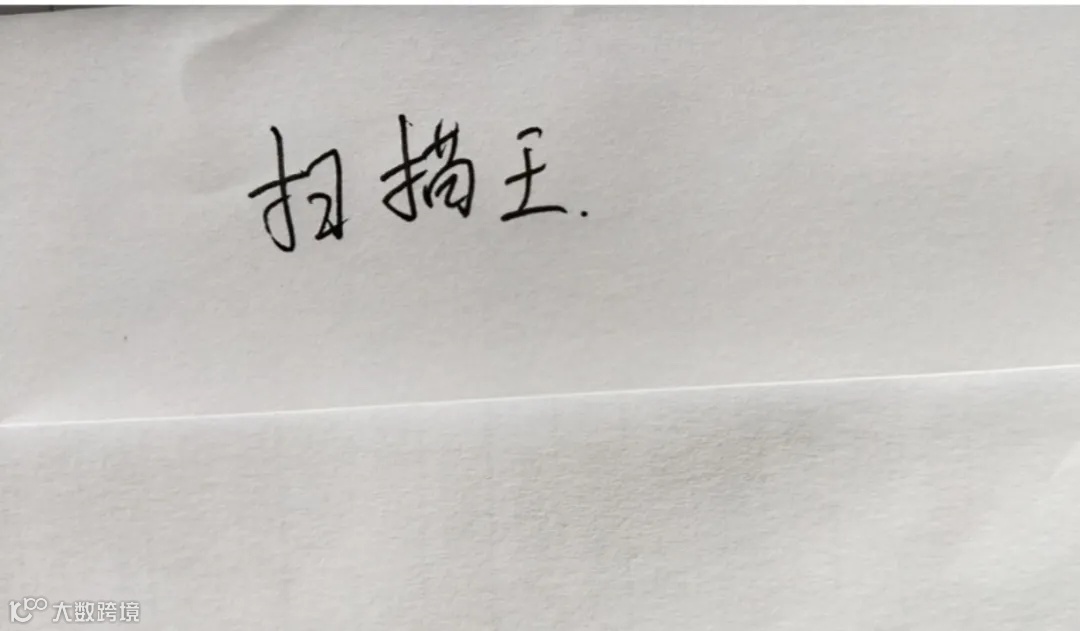 扫描王.
大数跨境